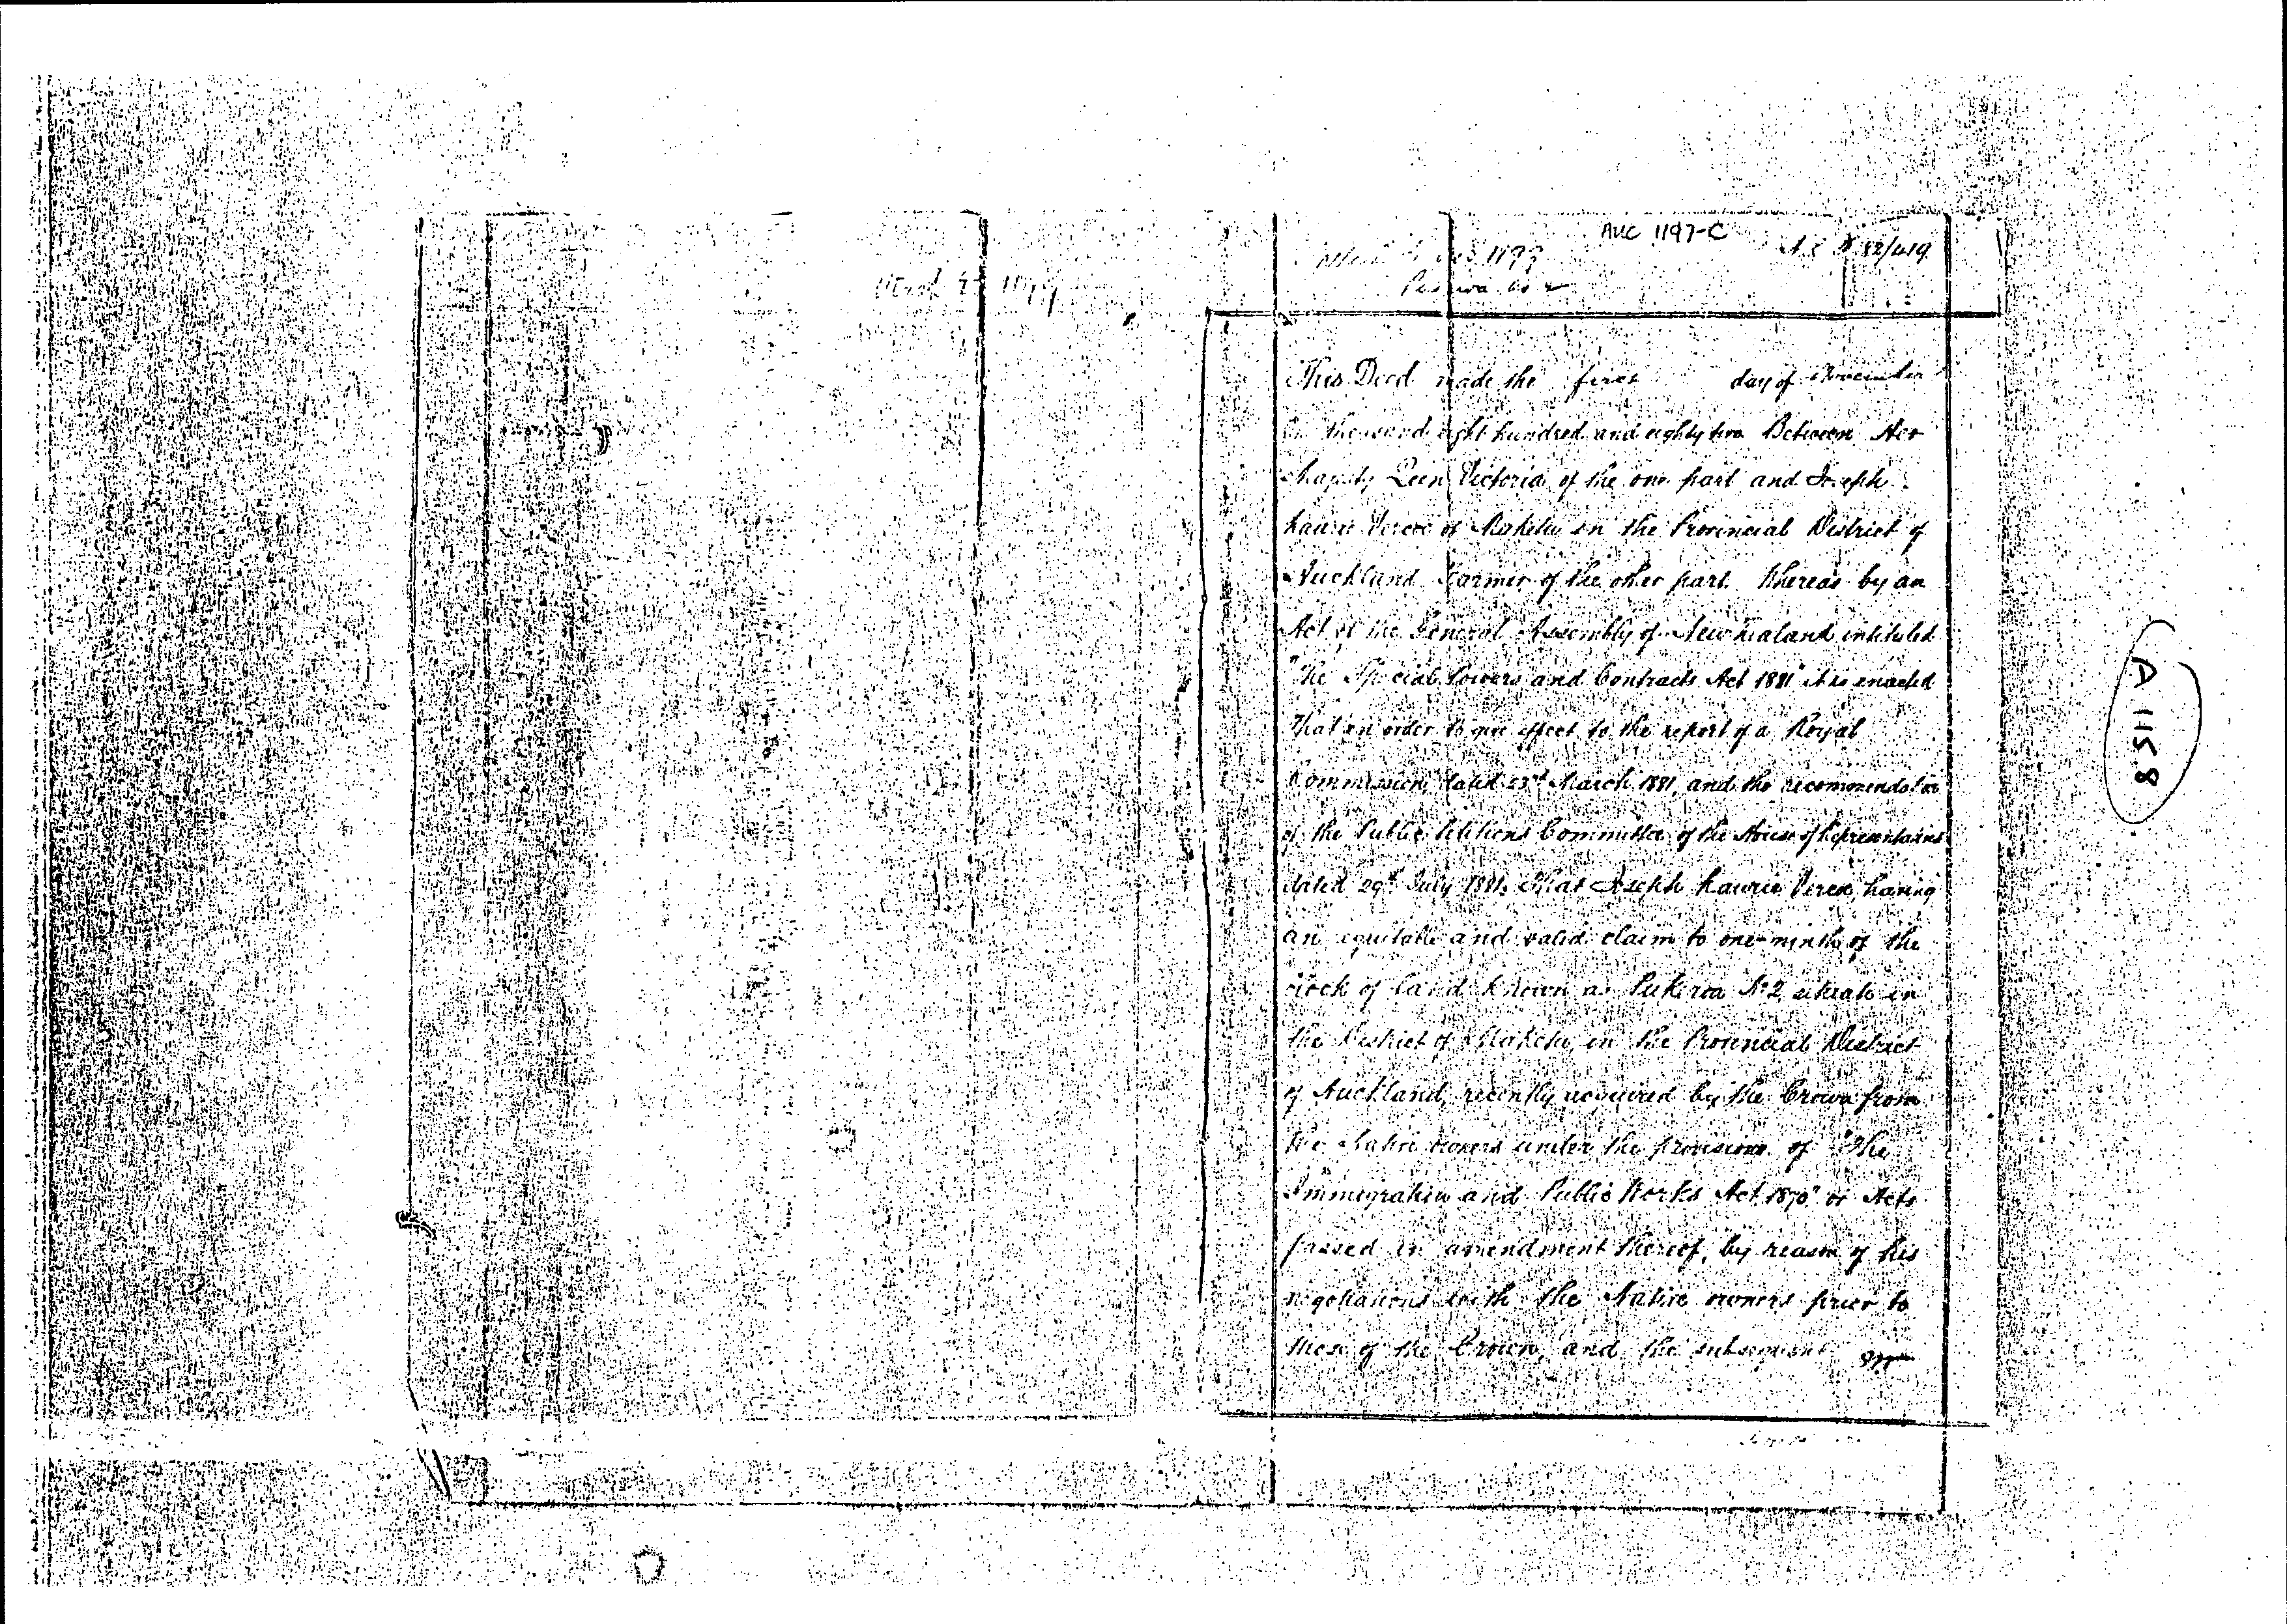 AUC 1197-C
82/419
1197
Pukeroa No 2
This Deed made the first day of November
thousand eight hundred and eighty two Between Her
Majesty Queen Victoria of the one part and Joseph
Laurie of Maketu in the Provincial District of
Auckland Farmer of the other part. Whereas by an
Act of the General Assembly of New Zealand intituled
"The Special Powers and Contracts Act 1881" it is enacted
That in order to give effect to the report of a Royal
Commission, dated 23rd March 1881, and the recommendation
of the Public Petitions Committee of the House of Representatives
dated 29th July 1881, That Joseph Laurie having
an equitable and valid claim to one-ninth of the
Block of land known as Pukeroa No 2 situate in
the District of Maketu, in the Provincial District
of Auckland, recently acquired by the Crown from
the Native owners under the provisions of "The
Immigration and Public Works Act 1870" or Acts
passed in amendment thereof, by reason of his
negotiations with the Native owners prior to
those of the Crown, and the subsequent
A 1158